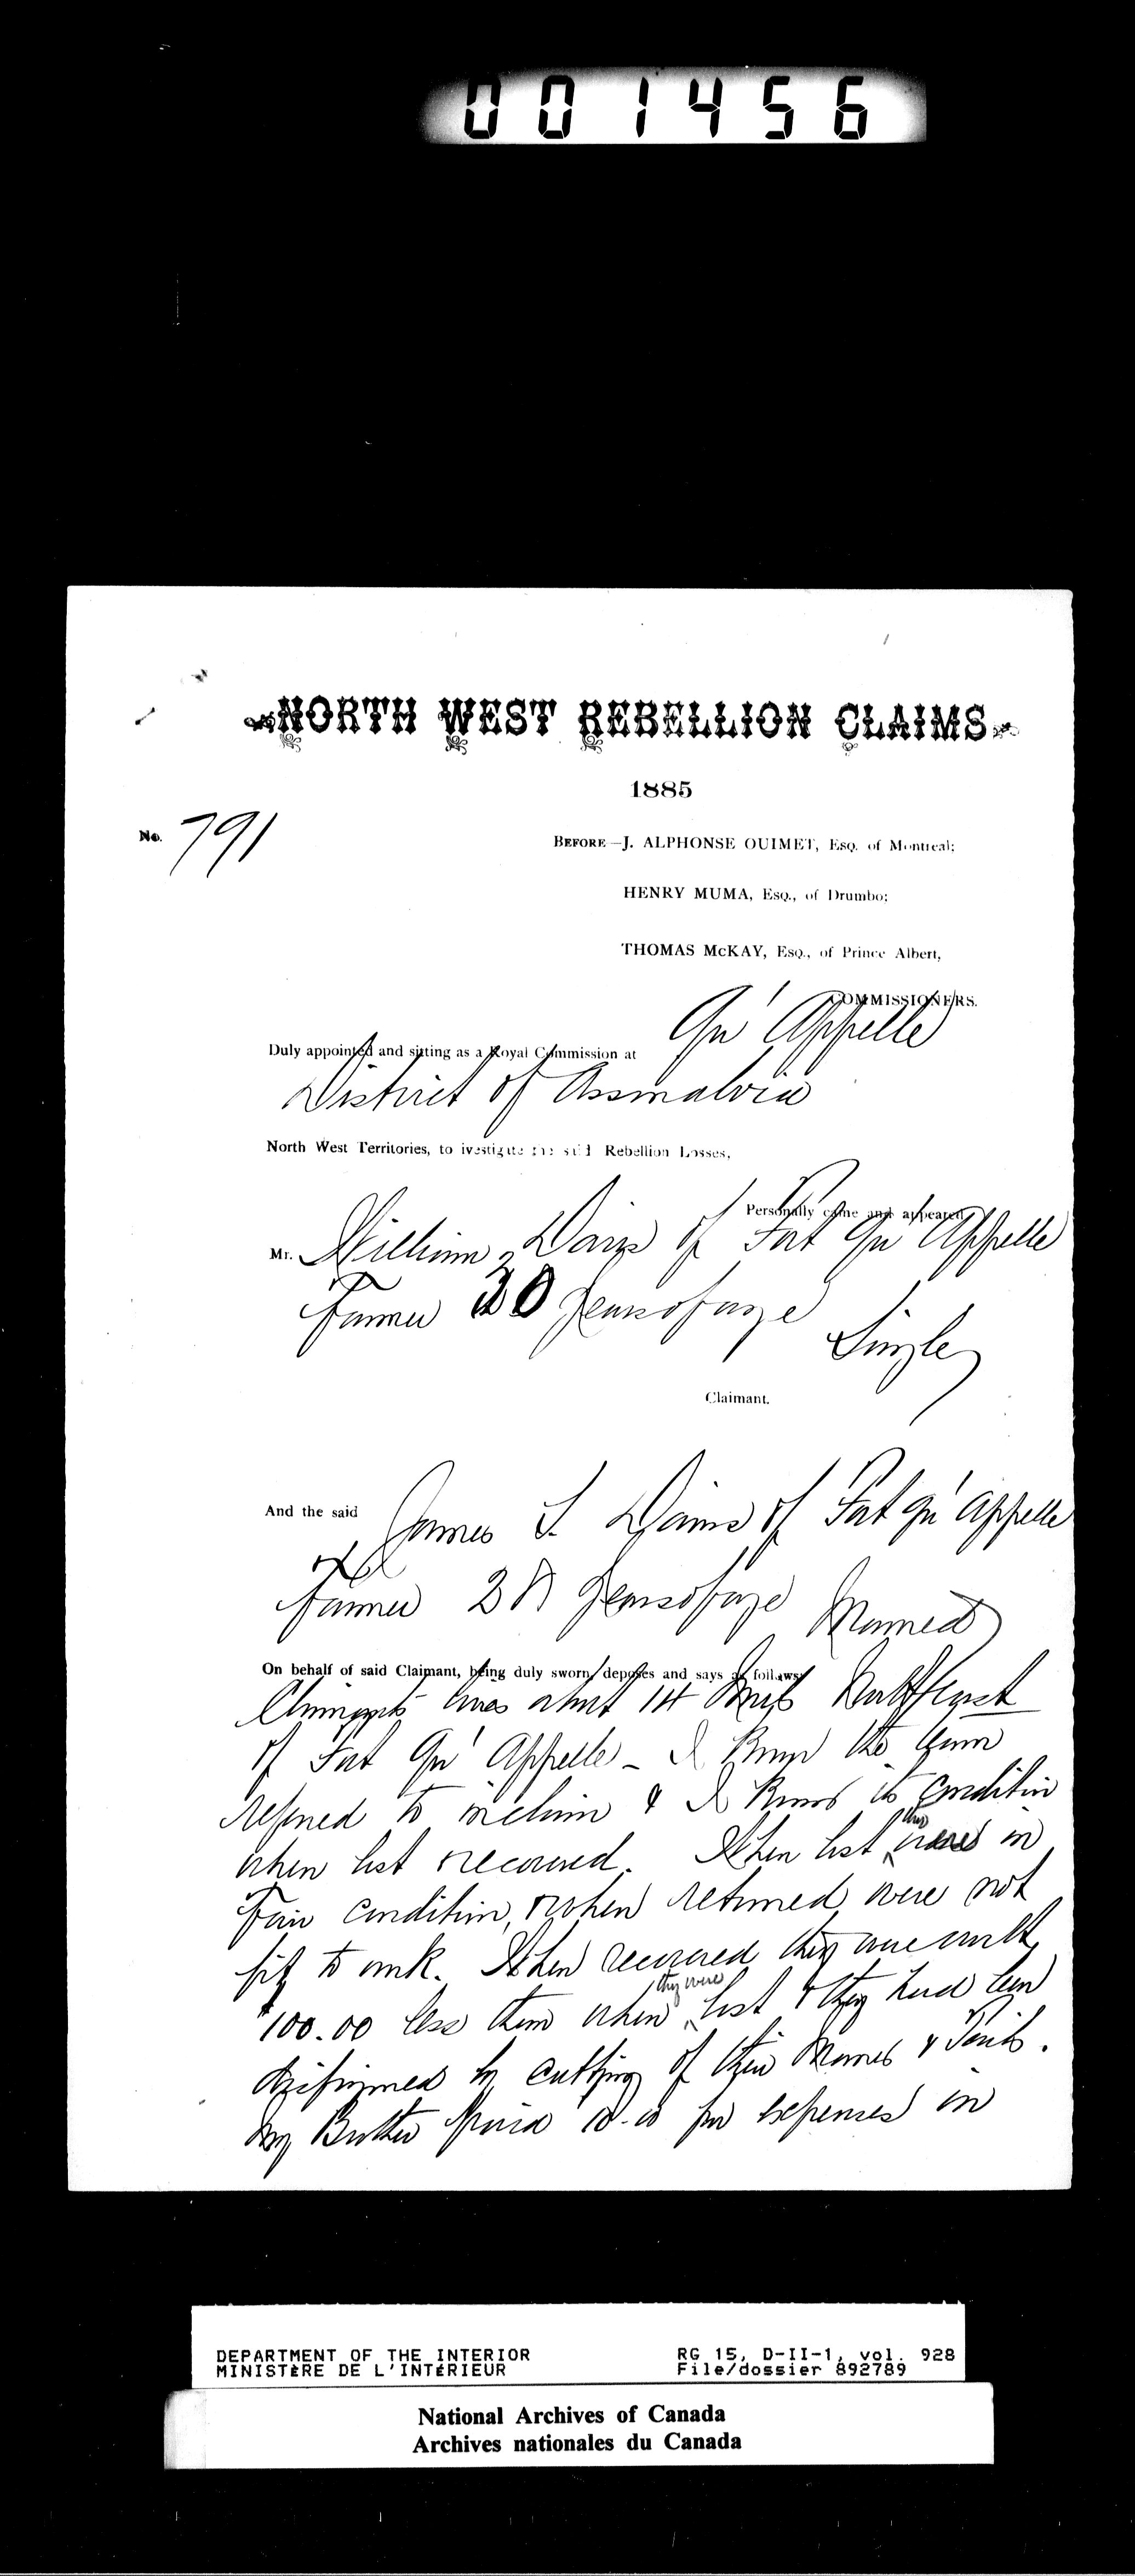 001456
NORTH WEST REBELLION CLAIMS
1885
No. 791
BEFORE—J. ALPHONSE OUIMET, Esq. of Montreal;
HENRY MUMA, Esq., of Drumbo;
THOMAS McKAY, Esq., of Prince Albert,
COMMISSIONERS.
Duly appointed and sitting as a Royal Commission at Qu'Appelle
District of Assinaboia
North West Territories, to ivestigate the said Rebellion Losses,
Personally came and appeared
Mr. William Davis of Fort Qu'Appelle
Farmer 20 years of age
Single
Claimant.
And the said James Davis of Fort Qu'Appelle
Farmer years of age Married
On behalf of said Claimant, being duly sworn, deposes and says as follows:
Claimant lives about 14 Miles North East
of Fort Qu'Appelle - I know the team
referred to in claim & I know its condition
when lost & recovered. When lost they in
Fair condition, & when returned were not
fit to work. When recovered they were worth
$100.00 less than when they were lost & they had been
disfigured by cutting of their Manes & Tails.
My Brother paid for expenses in
DEPARTMENT OF THE INTERIOR
MINISTÈRE DE L'INTÉRIEUR
RG 15, D-II-1, vol. 928
File/dossier 892789
National Archives of Canada
Archives nationales du Canada